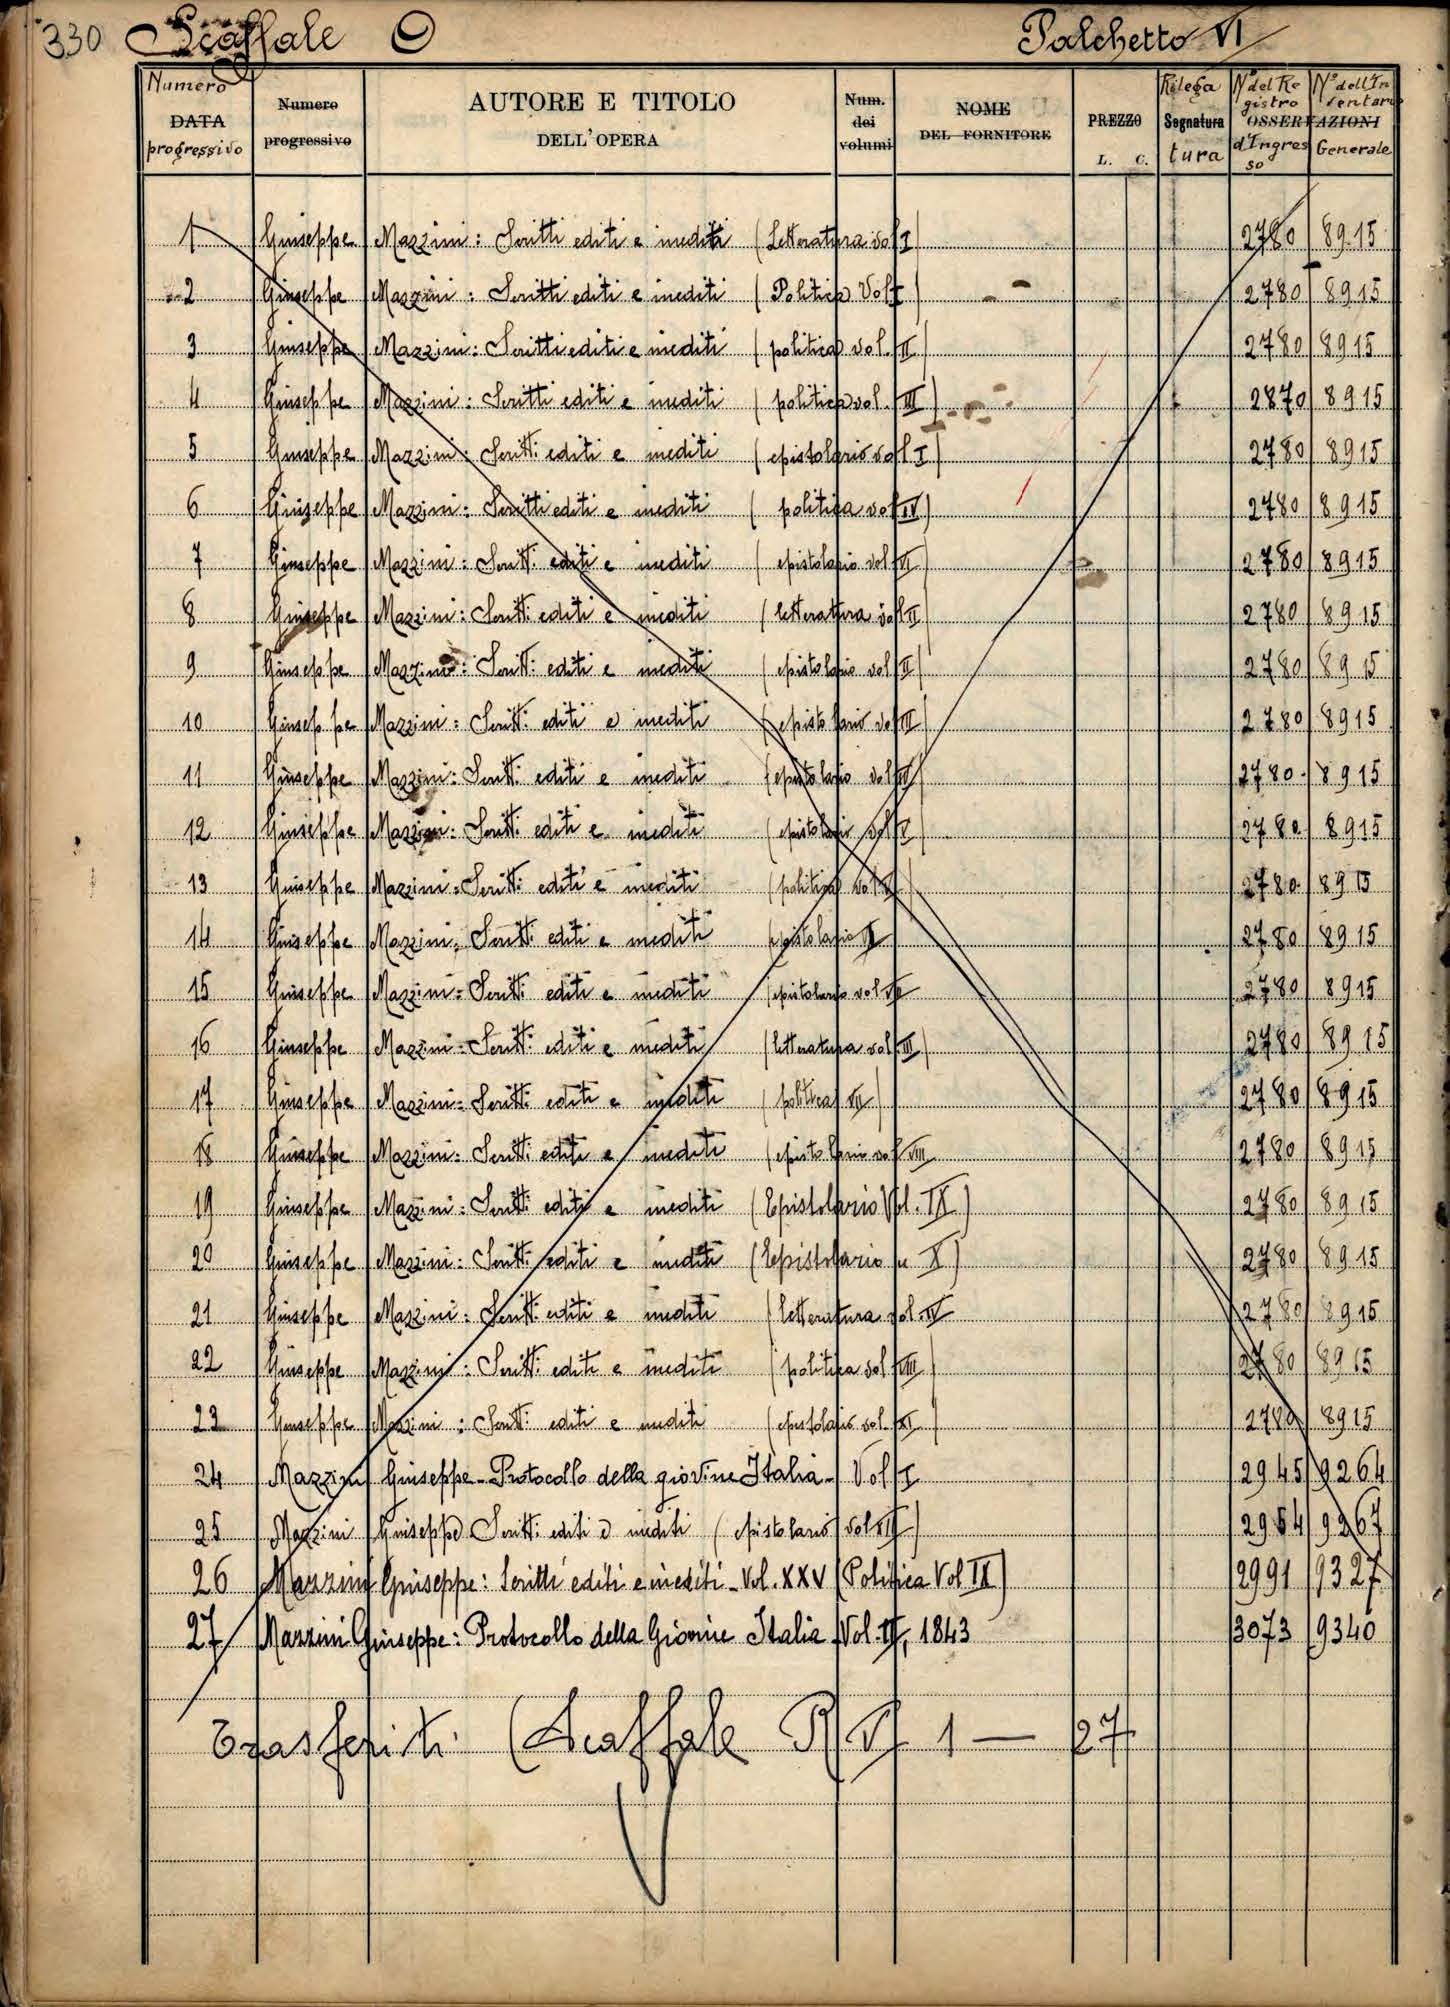 330 Scaffale O Palchetto VI
Numero DATA progressivo
Numero progressivo
AUTORE E TITOLO DELL'OPERA
Num. dei volumi
NOME DEL FORNITORE
PREZZO L. C.
Rilega Segnatura tura
N° del Registro d'Ingresso
OSSERVAZIONI
N° dell'Inventario Generale
1 Giuseppe Mazzini: Scritti editi e inediti (Letteratura vol I) 2780 8915
2 Giuseppe Mazzini: Scritti editi e inediti (Politica Vol I) 2780 8915
3 Giuseppe Mazzini: Scritti editi e inediti (politica vol. II) 2780 8915
4 Giuseppe Mazzini: Scritti editi e inediti (politica vol. III) 2870 8915
5 Giuseppe Mazzini: Scritti editi e inediti (epistolario vol I) 2780 8915
6 Giuseppe Mazzini: Scritti editi e inediti (politica vol IV) 2780 8915
7 Giuseppe Mazzini: Scritti editi e inediti (epistolario vol VI) 2780 8915
8 Giuseppe Mazzini: Scritti editi e inediti (letteratura vol II) 2780 8915
9 Giuseppe Mazzini: Scritti editi e inediti (epistolario vol II) 2780 8915
10 Giuseppe Mazzini: Scritti editi e inediti (epistolario vol III) 2780 8915
11 Giuseppe Mazzini: Scritti editi e inediti (epistolario vol IV) 2780 8915
12 Giuseppe Mazzini: Scritti editi e inediti (epistolario vol V) 2780 8915
13 Giuseppe Mazzini: Scritti editi e inediti (politica vol 2780 8915
14 Giuseppe Mazzini: Scritti editi e inediti (epistolario 2780 8915
15 Giuseppe Mazzini: Scritti editi e inediti (epistolario vol 2780 8915
16 Giuseppe Mazzini: Scritti editi e inediti (letteratura vol. III) 2780 8915
17 Giuseppe Mazzini: Scritti editi e inediti (politica VII) 2780 8915
18 Giuseppe Mazzini: Scritti editi e inediti (epistolario vol VIII 2780 8915
19 Giuseppe Mazzini: Scritti editi e inediti (Epistolario Vol. IX) 2780 8915
20 Giuseppe Mazzini: Scritti editi e inediti (Epistolario " X) 2780 8915
21 Giuseppe Mazzini: Scritti editi e inediti (letteratura vol. IV 2780 8915
22 Giuseppe Mazzini: Scritti editi e inediti (politica vol VIII) 2780 8915
23 Giuseppe Mazzini: Scritti editi e inediti (epistolario vol. XI) 2780 8915
24 Mazzini Giuseppe - Protocollo della giovine Italia - Vol I 2945 9264
25 Mazzini Giuseppe Scritti editi e inediti (epistolario vol XII) 2954 9267
26 Mazzini Giuseppe: Scritti editi e inediti - Vol. XXV (Politica Vol IX) 2991 9327
27 Mazzini Giuseppe: Protocollo della Giovine Italia Vol. II, 1843 3073 9340
trasferiti (Scaffale R V 1 — 27